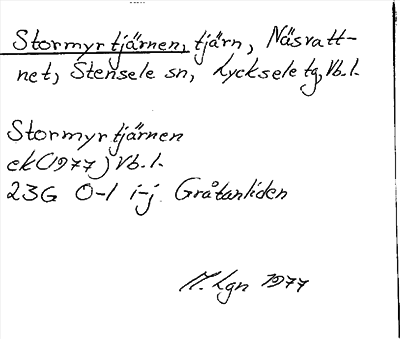 Stormyrtjärnen, tjärn, Näsvatt-
net, Stensele sn, Lycksele tg, Vb.l.
Stormyrtjärnen
ek(1977) Vb.l.
23G 0-1 i-j Gråtanliden
M. Lgn 1977